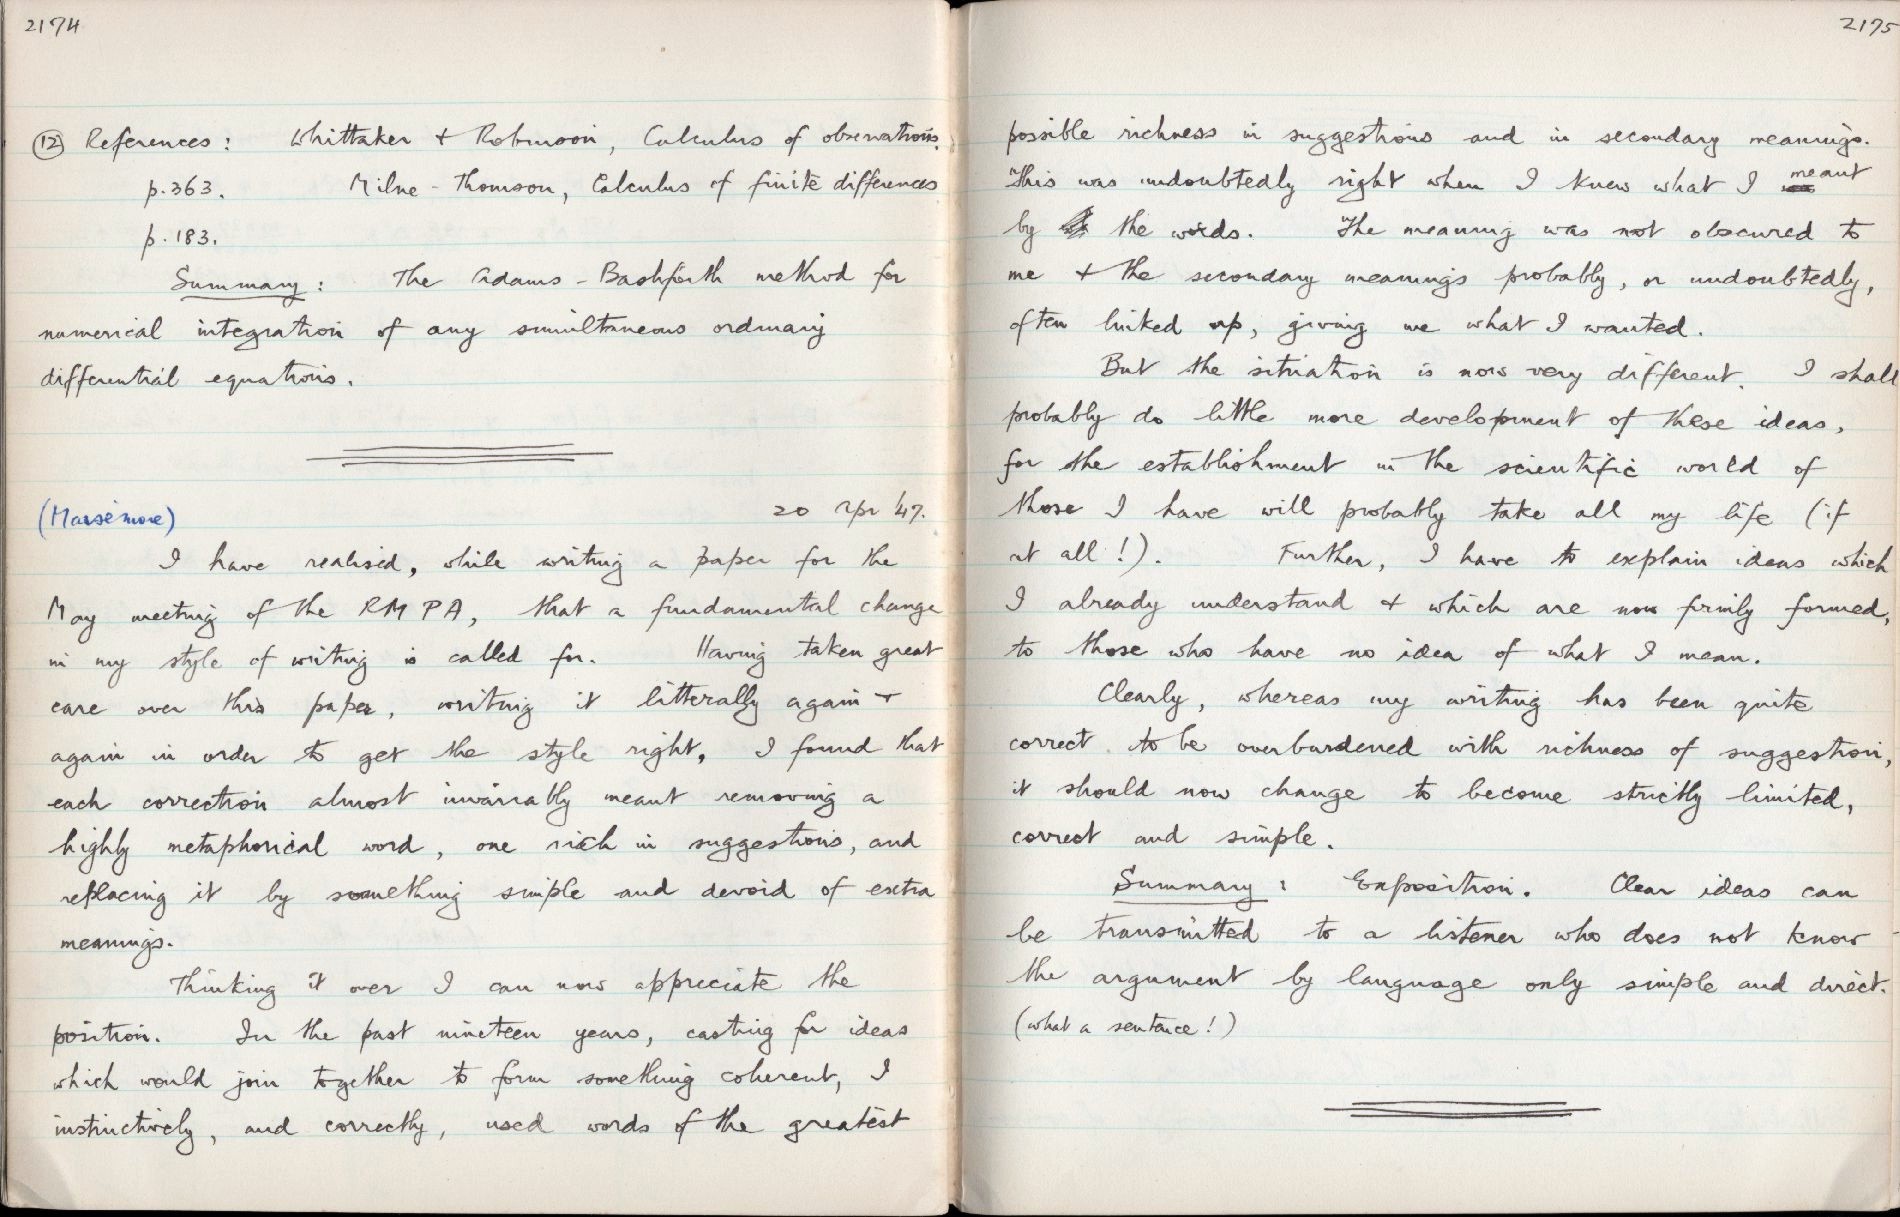 2174
⑫ References : Whittaker + Robinson, Calculus of observations.
p. 363. Milne-Thomson, Calculus of finite differences
p. 183.
Summary : The Adams-Bashforth method for
numerical integration of any simultaneous ordinary
differential equations.
(Marsemore) 20 Apr '47.
I have realised, while writing a paper for the
May meeting of the RMPA, that a fundamental change
in my style of writing is called for. Having taken great
care over this paper, writing it litterally again +
again in order to get the style right, I found that
each correction almost invariably meant removing a
highly metaphorical word, one rich in suggestions, and
replacing it by something simple and devoid of extra
meanings.
Thinking it over I can now appreciate the
position. In the past nineteen years, casting for ideas
which would join together to form something coherent, I
instinctively, and correctly, used words of the greatest
2175
possible richness in suggestions and in secondary meanings.
This was undoubtedly right when I knew what I meant
by the words. The meaning was not obscured to
me + the secondary meanings probably, or undoubtedly,
often linked up, giving me what I wanted.
But the situation is now very different. I shall
probably do little more development of these ideas,
for the establishment in the scientific world of
those I have will probably take all my life (if
at all !). Further, I have to explain ideas which
I already understand + which are now firmly formed,
to those who have no idea of what I mean.
Clearly, whereas my writing has been quite
correct to be overburdened with richness of suggestion,
it should now change to become strictly limited,
correct and simple.
Summary : Exposition. Clear ideas can
be transmitted to a listener who does not know
the argument by language only simple and direct.
(what a sentence!)